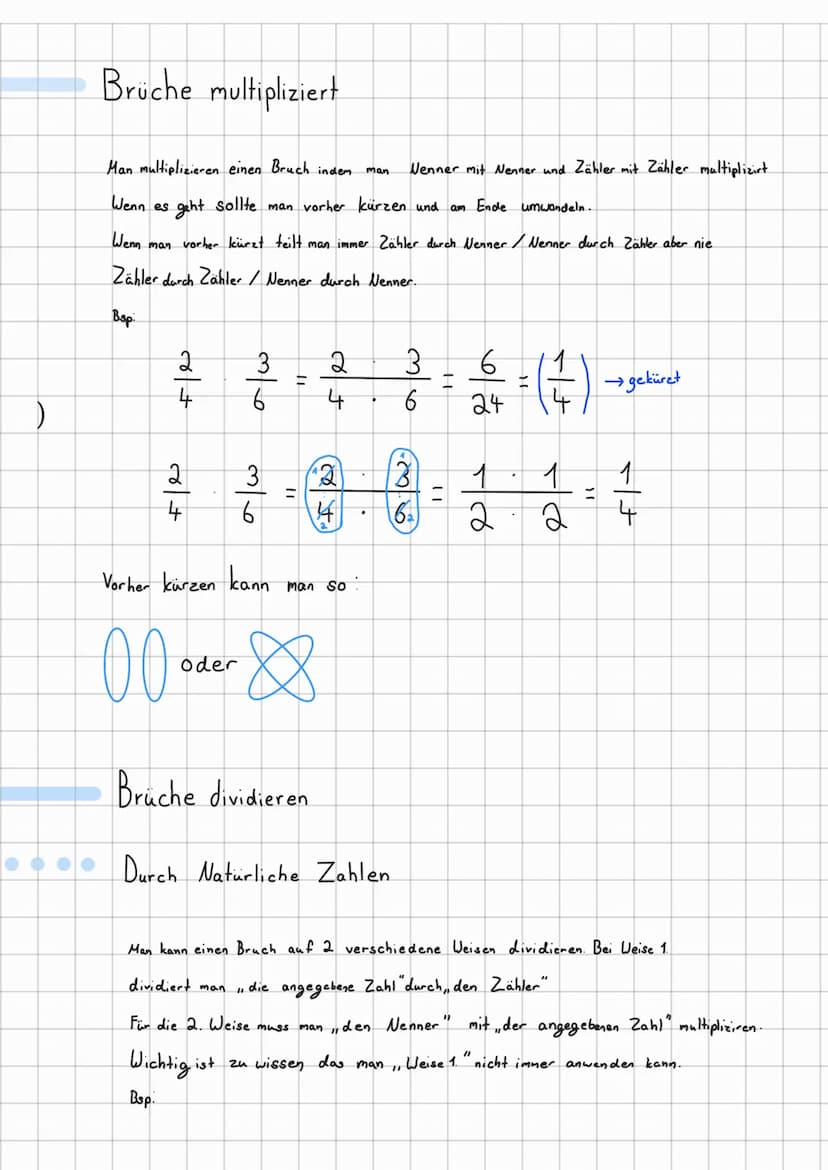 Brüche multipliziert
Man multiplizieren einen Bruch indem man Nenner mit Nenner und Zähler mit Zähler multiplizirt
Wenn es geht sollte man vorher kürzen und am Ende umwandeln.
Wenn man vorher kürzt teilt man immer Zähler durch Nenner / Nenner durch Zähler aber nie
Zähler durch Zähler / Nenner durch Nenner.
Bsp:
2/4 · 3/6 = 2 · 3 / 4 · 6 = 6/24 = (1/4) → gekürzt
)
2/4 · 3/6 = 1 2 · 3 1 / 4 2 · 6 2 = 1 · 1 / 2 · 2 = 1/4
Vorher kürzen kann man so:
oder
Brüche dividieren
Durch Natürliche Zahlen
Man kann einen Bruch auf 2 verschiedene Weisen dividieren. Bei Weise 1.
dividiert man „die angegebene Zahl" durch „den Zähler"
Für die 2. Weise muss man „den Nenner" mit „der angegebenen Zahl" multipliziren.
Wichtig ist zu wissen das man „Weise 1." nicht immer anwenden kann.
Bsp: